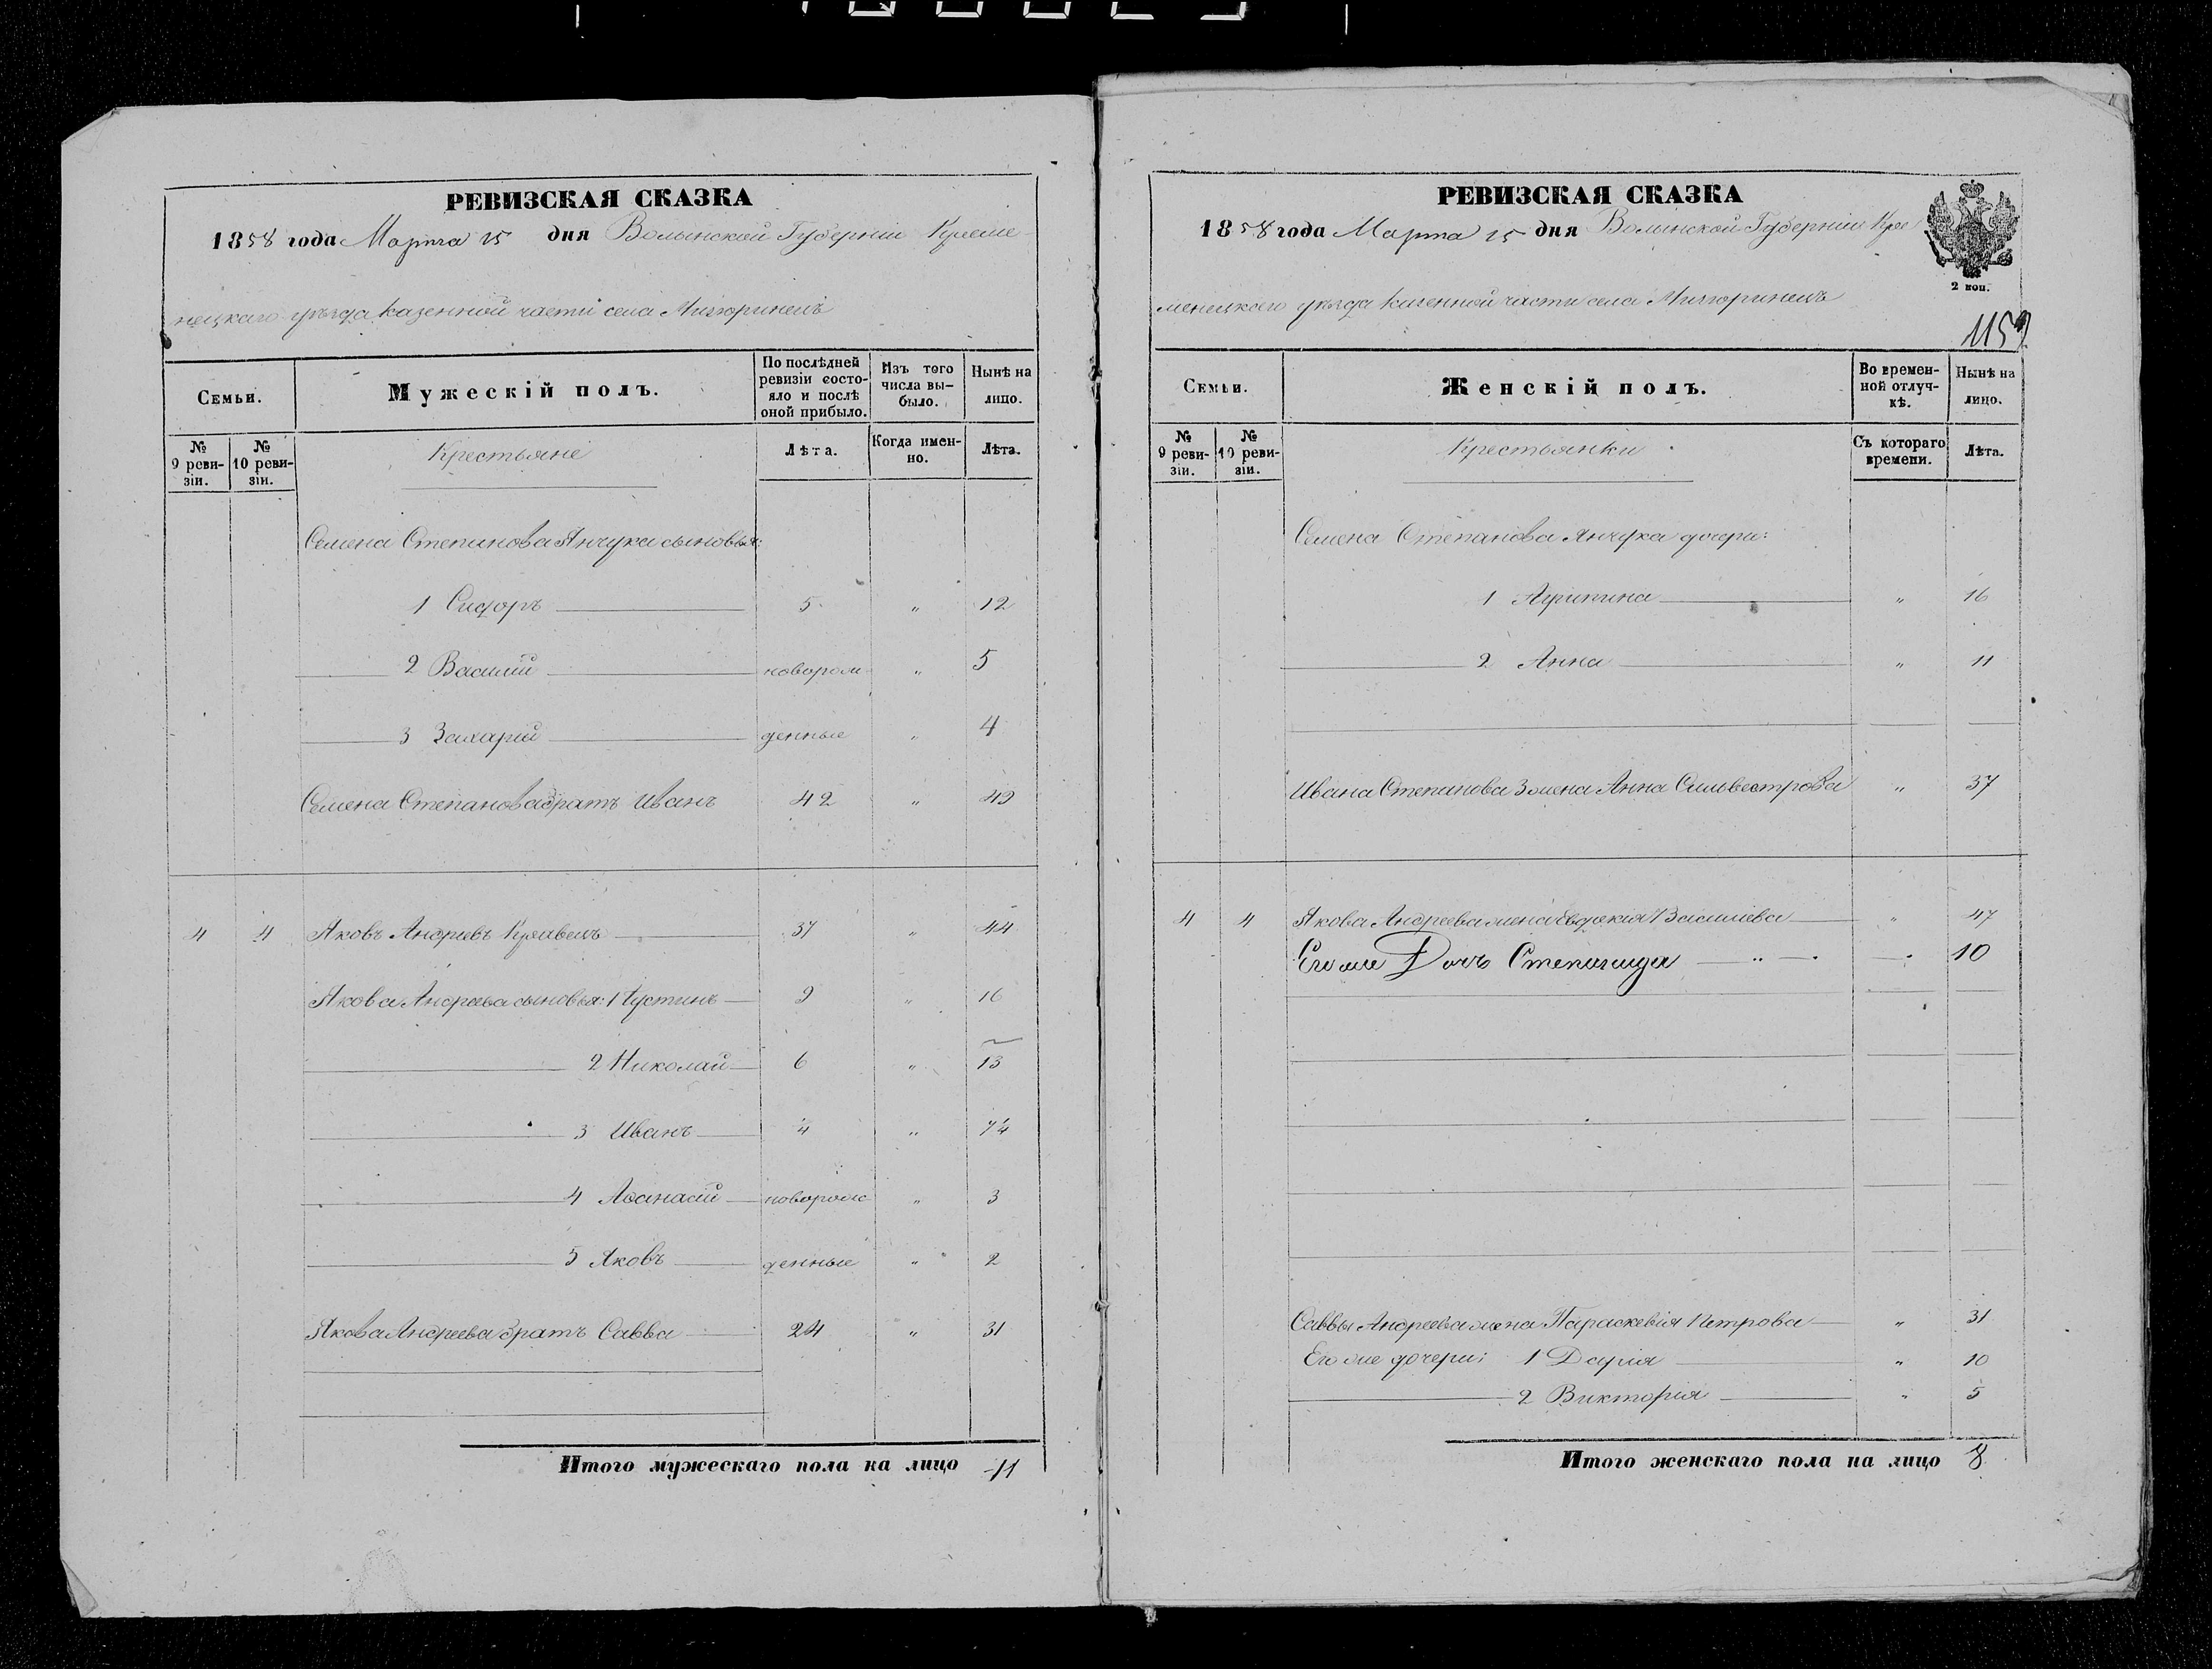 РЕВИЗСКАЯ СКАЗКА
1858 года Марта 15 дня Волынской Губерніи Креме
нецкаго уѣзда казенной части села Мизюринецъ
Семьи.
Мужескій полъ.
По послѣдней ревизіи состояло и послѣ оной прибыло.
Изъ того числа вы-было.
Нынѣ на лицо.
№ 9 реви-зіи.
№ 10 реви-зіи.
Крестьяне
Лѣта.
Когда имен-но.
Лѣта.
Семена Степанова Янчука сыновья:
1 Сидоръ 5 " 12
2 Василій новорож " 5
3 Захарій денные " 4
Семена Степанова братъ Иванъ 42 " 49
4 4 Яковъ Андреевъ Кравецъ 37 " 44
Якова Андреева сыновья: 1 Устинъ 9 " 16
2 Николай 6 " 13
3 Иванъ 4 "
4 Аѳанасій новорож " 3
5 Яковъ денные " 2
Якова Андреева братъ Савва 24 " 31
Итого мужескаго пола на лицо 11
РЕВИЗСКАЯ СКАЗКА
1858 года Марта 15 дня Волынской Губерніи Кре
менецкого уѣзда казенной части села Мизюринецъ
2 коп.
1159
Семьи.
Женскій полъ.
Во времен-ной отлуч-кѣ.
Нынѣ на лицо.
№ 9 реви-зіи.
№ 10 реви-зіи.
Крестьянки
Съ котораго времени.
Лѣта.
Семена Степанова Янчука дочери:
1 Агрипина " 16
2 Анна " 11
Ивана Степанова жена Анна Сильвестрова " 37
4 4 Якова Андреева жена Евдокія Васильева " 47
Его же Дочь Степанида 10
Саввы Андреева жена Параскевія Петрова " 31
Его же дочери: 1 Дарія " 10
2 Викторія " 5
Итого женскаго пола на лицо 8